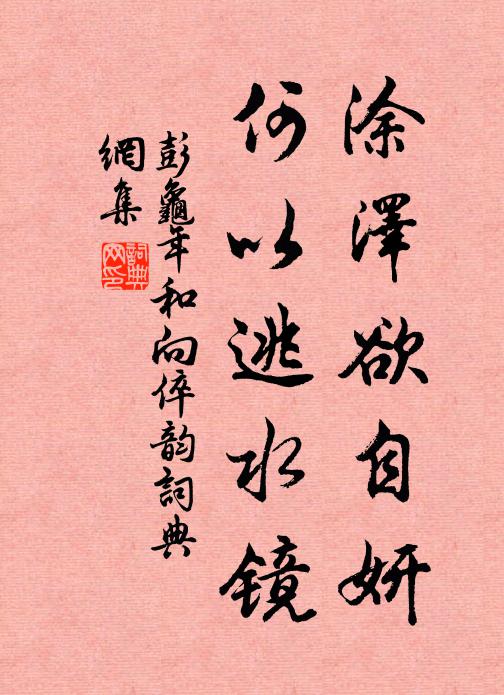 涂澤欲自妍
何以逃水镜
彭龜年和向倅韵詞典
網集
詞典
网印